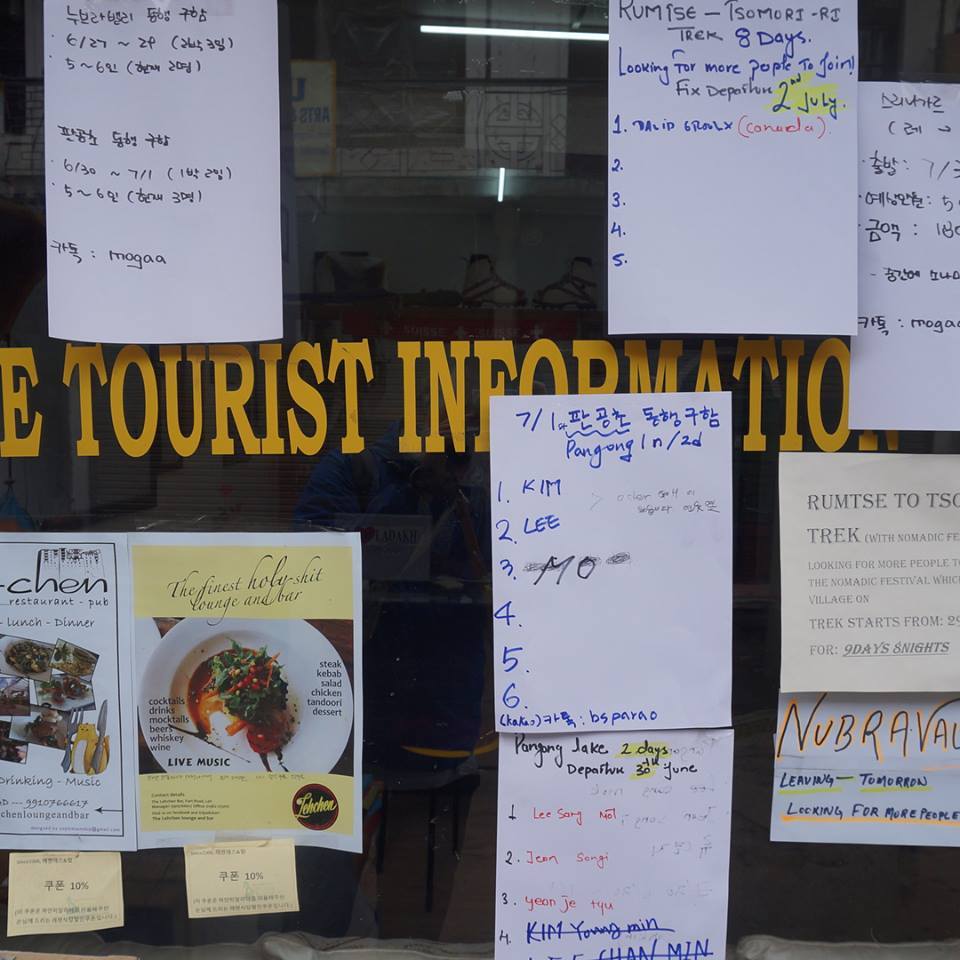 누브라밸리 동행 구함
· 6/27 ~ 29 (2박 3일)
· 5~6인 (현재 2명)
판공초 동행 구함
· 6/30 ~ 7/1 (1박 2일)
· 5~6인 (현재 3명)
카톡 : mogaa
RUMTSE – TSOMORI-RI
TREK 8 DAYS.
Looking For more people To Join!
Fix Departure 2nd July.
1. DAVID GROULX (Canada)
2.
3.
4.
5.
스리나가르
(레 →
· 출발 : 7/3
· 예상인원 : 5
· 금액 : 180
카톡 : mogaa
E TOURIST INFORMATION
7/1 판공초 동행구함
Pangong 1n/2d
1. KIM
2. LEE
3. MO
4.
5.
6.
(kakao) 카톡 : bsparao
Pangong lake 2 days
Departure 30th June
1 Lee Sang
2. Jeon Songi
3. yeon je
4. KIM Young min
CHAN MIN
RUMTSE TO TSO
TREK (WITH NOMADIC FE
LOOKING FOR MORE PEOPLE TO
THE NOMADIC FESTIVAL WHIC
VILLAGE ON
TREK STARTS FROM: 29
FOR: 9DAYS 8NIGHTS
NUBRA VAL
LEAVING – TOMORROW
LOOKING FOR MORE PEOPLE
-chen
restaurant - pub
- Lunch - Dinner
Drinking - Music
AD --- 9910766617
chenloungeandbar
The finest holy-shit
lounge and bar
steak
kebab
salad
chicken
tandoori
dessert
cocktails
drinks
mocktails
beers
whiskey
wine
LIVE MUSIC
Contact details
The Lehchen Bar, Fort Road, Leh
The Lehchen lounge and bar
Lehchen
쿠폰 10%
쿠폰 10%
LADAKH
SUISSE + SUISSE
ARTS &